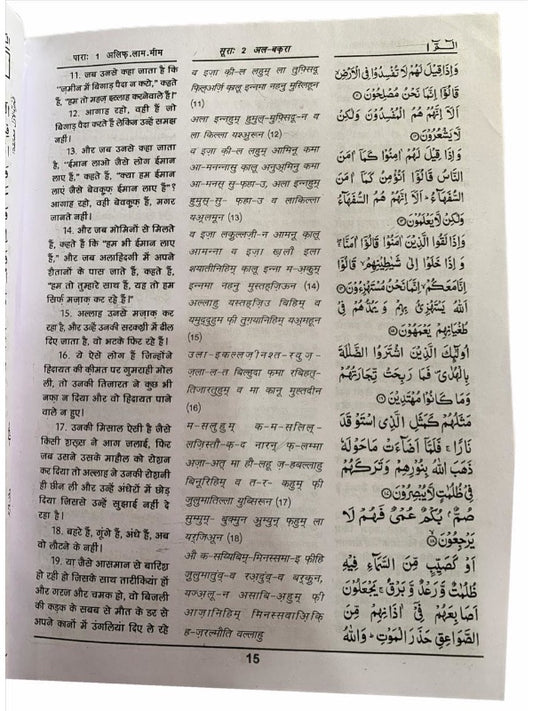 पारा: 1 अलिफ़.लाम.मीम
सूरा: 2 अल-बक़रा
الٓمّٓ ١
11. जब उनसे कहा जाता है कि
"ज़मीन में बिगाड़ पैदा न करो," कहते
हैं, "हम तो महज़ इस्लाह करनेवाले हैं!"
12. आगाह रहो, वही हैं जो
बिगाड़ पैदा करते हैं लेकिन उन्हें समझ
नहीं।
13. और जब उनसे कहा जाता
है, "ईमान लाओ जैसे लोग ईमान
लाए हैं," कहते हैं, "क्या हम ईमान
लाएं जैसे बेवकूफ़ ईमान लाए हैं"?
आगाह रहो, वही बेवकूफ़ हैं, मगर
जानते नहीं।
14. और जब मोमिनों से मिलते
हैं, कहते हैं कि "हम भी ईमान लाए
हैं," और जब अलाहिदगी में अपने
शैतानों के पास जाते हैं, कहते हैं,
"हम तो तुम्हारे साथ हैं, यह तो हम
सिर्फ़ मज़ाक़ कर रहे हैं।"
15. अल्लाह उनसे मज़ाक़ कर
रहा है, और उन्हें उनकी सरकशी में ढील
दिए जाता है, वो भटके फिर रहे हैं।
16. ये ऐसे लोग हैं जिन्होंने
हिदायत की क़ीमत पर गुमराही मोल
ली, तो उनकी तिजारत ने कुछ भी
नफ़ा न दिया और वो हिदायत पाने
वाले न हुए।
17. उनकी मिसाल ऐसी है जैसे
किसी शख़्स ने आग जलाई, फिर
जब उसने उसके माहौल को रोशन
कर दिया तो अल्लाह ने उनकी रोशनी
ही छीन ली और उन्हें अंधेरों में छोड़
दिया जिससे उन्हें सुझाई नहीं दे
रहा है।
18. बहरे हैं, गूंगे हैं, अंधे हैं, अब
वो लौटने के नहीं।
19. या जैसे आसमान से बारिश
हो रही हो जिसके साथ तारीकियां हों
और गरज और चमक हो, वो बिजली
की कड़क के सबब से मौत के डर से
अपने कानों में उंगलियां दिए ले रहे
व इज़ा क़ी-ल लहुम् ला तुफ़्सिदू
फ़िल्अर्ज़ि क़ालू इन्नमा नहनु मुस्लिहून
(11)
अला इन्नहुम् हुमुल्-मुफ़्सिदू-न व
ला किल्ला यश्अुरून (12)
व इज़ा क़ी-ल लहुम् आमिनू कमा
आ-मनन्नासु क़ालू अनुअ्मिनु कमा
आ-मनस् सु-फ़हा-उ, अला इन्नहुम्
हुमुस्-सु- फ़हा-उ व लाकिल्ला
यअ्लमून (13)
व इज़ा लक़ुल्लज़ी-न आमनू क़ालू
आमन्ना व इज़ा ख़लौ इला
शयातीनिहिम् क़ालू इन्ना म-अ़कुम्
इन्नमा नहनु मुस्तहज़िऊन (14)
अल्लाहु यस्तहज़िउ बिहिम् व
यमुद्दुहुम फ़ी तुग़यानिहिम् यअ़महून
(15)
उला-इकल्लज़ीनश्त-रवुज़्-
ज़ला-ल-त बिल्हुदा फ़मा रबिहत्-
तिजारतुहुम् व मा कानू मुहतदीन
(16)
म-सलुहुम् क-म-सलिल्-
लज़िस्तौक़-द नारन् फ़-लम्मा
अज़ा-अत् मा ही-लहू ज़-हबल्लाहु
बिनूरिहिम् व त-र- कहुम् फ़ी
ज़ुलुमातिल्ला युब्सिरून (17)
सुम्मुम्- बुक्मुन अुम्युन् फ़हुम् ला
यर्जिअून (18)
औ क-सय्यिबिम्-मिनस्समा-इ फ़ीहि
ज़ुलुमातुव्-व रअ्दुव्-व बर्क़ुन्,
यज्अ़लू-न असाबि-अ़हुम् फ़ी
आज़ानिहिम् मिनस्सवाअ़िक़ि
ह-ज़रल्मौति वल्लाहु
وَإِذَا قِيلَ لَهُمْ لَا تُفْسِدُوا فِي الْأَرْضِ
قَالُوٓا إِنَّمَا نَحْنُ مُصْلِحُونَ ۝
أَلَآ إِنَّهُمْ هُمُ الْمُفْسِدُونَ وَلَٰكِن
لَّا يَشْعُرُونَ ۝
وَإِذَا قِيلَ لَهُمْ اٰمِنُوا كَمَآ اٰمَنَ
النَّاسُ قَالُوٓا أَنُؤْمِنُ كَمَآ اٰمَنَ
السُّفَهَآءُ أَلَآ إِنَّهُمْ هُمُ السُّفَهَآءُ
وَلَٰكِن لَّا يَعْلَمُونَ ۝
وَإِذَا لَقُوا الَّذِينَ اٰمَنُوا قَالُوٓا اٰمَنَّا
وَإِذَا خَلَوْا إِلَىٰ شَيٰطِينِهِمْ قَالُوٓا
إِنَّا مَعَكُمْ إِنَّمَا نَحْنُ مُسْتَهْزِءُونَ ۝
اللَّهُ يَسْتَهْزِئُ بِهِمْ وَيَمُدُّهُمْ فِي
طُغْيَانِهِمْ يَعْمَهُونَ ۝
أُولَٰٓئِكَ الَّذِينَ اشْتَرَوُا الضَّلٰلَةَ
بِالْهُدَىٰ فَمَا رَبِحَتْ تِّجَارَتُهُمْ
وَمَا كَانُوا مُهْتَدِينَ ۝
مَثَلُهُمْ كَمَثَلِ الَّذِي اسْتَوْقَدَ
نَارًا فَلَمَّآ أَضَآءَتْ مَا حَوْلَهُ
ذَهَبَ اللَّهُ بِنُورِهِمْ وَتَرَكَهُمْ
فِي ظُلُمٰتٍ لَّا يُبْصِرُونَ ۝
صُمٌّۢ بُكْمٌ عُمْيٌ فَهُمْ لَا
يَرْجِعُونَ ۝
أَوْ كَصَيِّبٍ مِّنَ السَّمَآءِ فِيهِ
ظُلُمٰتٌ وَّرَعْدٌ وَّبَرْقٌ يَجْعَلُونَ
أَصَابِعَهُمْ فِيٓ اٰذَانِهِمْ مِّنَ
الصَّوَاعِقِ حَذَرَ الْمَوْتِ وَاللَّهُ
15